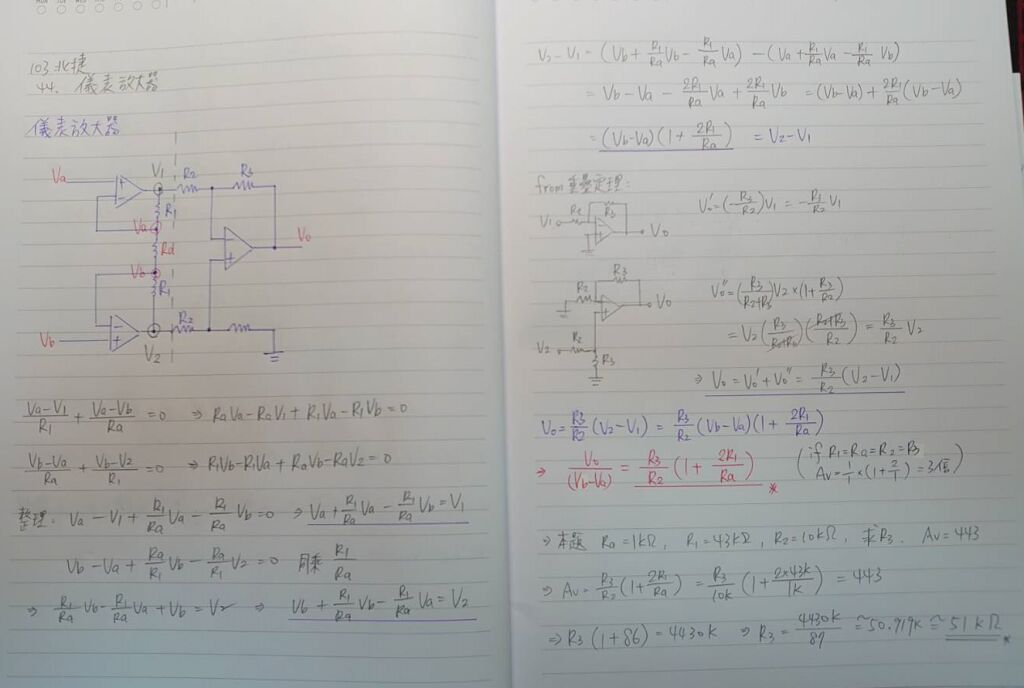 103 北捷
44. 儀表放大器
儀表放大器
Va
V1
R2
R3
R1
Va
Ra
Vb
R1
Vo
Vb
V2
R2
(Va-V1)/R1 + (Va-Vb)/Ra = 0 ⇒ RaVa-RaV1+R1Va-R1Vb=0
(Vb-Va)/Ra + (Vb-V2)/R1 = 0 ⇒ R1Vb-R1Va+RaVb-RaV2=0
整理: Va - V1 + R1/Ra Va - R1/Ra Vb = 0 ⇒ Va + R1/Ra Va - R1/Ra Vb = V1
Vb - Va + Ra/R1 Vb - Ra/R1 V2 = 0 同乘 R1/Ra
⇒ R1/Ra Vb - R1/Ra Va + Vb = V2 ⇒ Vb + R1/Ra Vb - R1/Ra Va = V2
V2 - V1 = (Vb + R1/Ra Vb - R1/Ra Va) - (Va + R1/Ra Va - R1/Ra Vb)
= Vb - Va - 2R1/Ra Va + 2R1/Ra Vb = (Vb-Va) + 2R1/Ra (Vb-Va)
= (Vb-Va)(1 + 2R1/Ra) = V2-V1
from 重疊定理:
V1
R2
R3
Vo
Vo' = (-R3/R2)V1 = -R3/R2 V1
R3
R2
Vo
V2
R2
R3
Vo'' = (R3/(R2+R3))V2 × (1 + R3/R2)
= V2 (R3/(R2+R3)) ((R2+R3)/R2) = R3/R2 V2
⇒ Vo = Vo' + Vo'' = R3/R2 (V2-V1)
Vo = R3/R2 (V2-V1) = R3/R2 (Vb-Va)(1 + 2R1/Ra)
⇒ Vo/(Vb-Va) = R3/R2 (1 + 2R1/Ra) *
(if R1=Ra=R2=R3
Av = 1/1 × (1 + 2/1) = 3倍)
⇒ 本題 Ra = 1kΩ, R1 = 43kΩ, R2 = 10kΩ, 求R3. Av = 443
⇒ Av = R3/R2 (1 + 2R1/Ra) = R3/10k (1 + 2×43k/1k) = 443
⇒ R3 (1+86) = 4430k ⇒ R3 = 4430k/87 ≒ 50.919k ≒ 51kΩ *